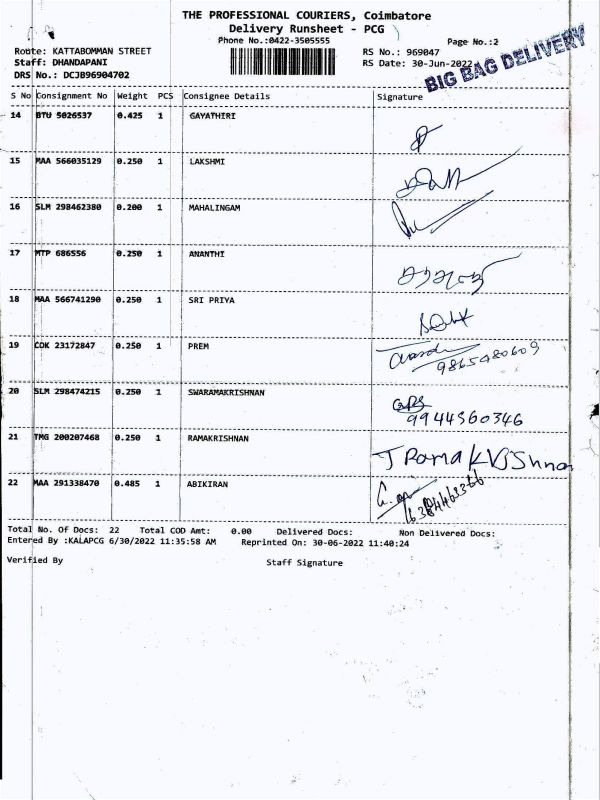 THE PROFESSIONAL COURIERS, Coimbatore
Delivery Runsheet - PCG
Phone No.:0422-3505555
Page No.:2
Route: KATTABOMMAN STREET
RS No.: 969047
Staff: DHANDAPANI
RS Date: 30-Jun-2022
DRS No.: DCJB96904702
BIG BAG DELIVERY
S No Consignment No Weight PCS Consignee Details Signature
14 BTU 5026537 0.425 1 GAYATHIRI
15 MAA 566035129 0.250 1 LAKSHMI
16 SLM 298462380 0.200 1 MAHALINGAM
17 MTP 686556 0.250 1 ANANTHI
18 MAA 566741290 0.250 1 SRI PRIYA
19 COK 23172847 0.250 1 PREM
9865480609
20 SLM 298474215 0.250 1 SWARAMAKRISHNAN
9944360346
21 TMG 200207468 0.250 1 RAMAKRISHNAN
22 MAA 291338470 0.485 1 ABIKIRAN
Total No. Of Docs: 22 Total COD Amt: 0.00 Delivered Docs: Non Delivered Docs:
Entered By :KALAPCG 6/30/2022 11:35:58 AM Reprinted On: 30-06-2022 11:40:24
Verified By Staff Signature